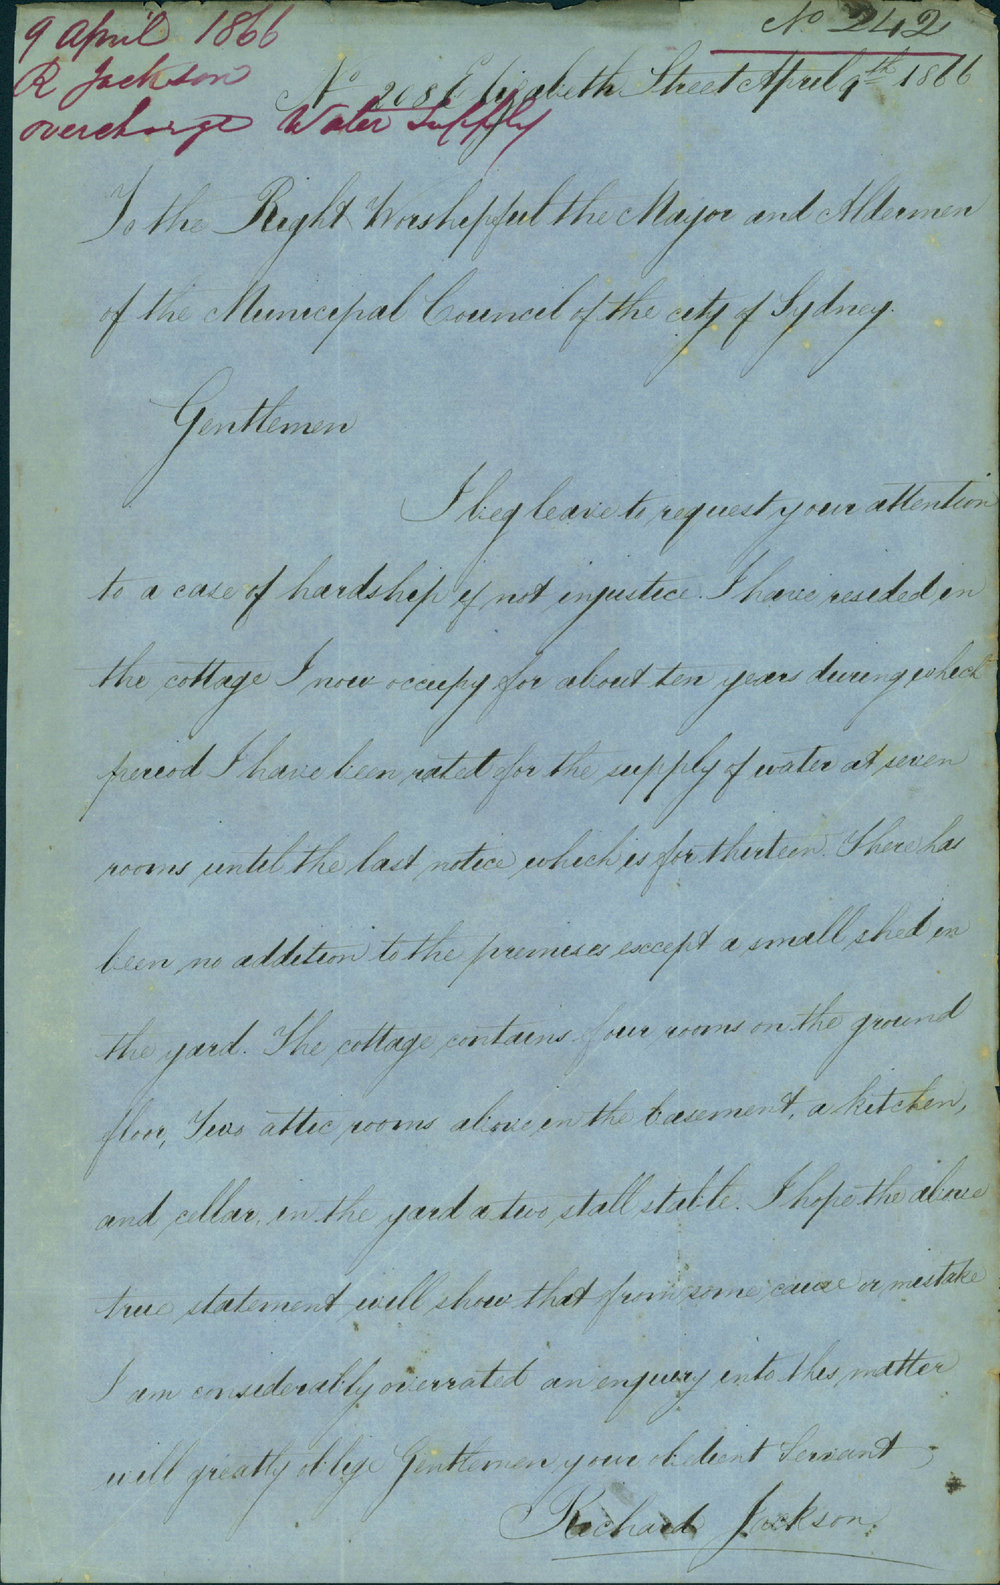 9 April 1866
R Jackson
overcharge Water Supply
No 242
No 208 Elizabeth Street April 9th 1866
To the Right Worshipful the Mayor and Aldermen
of the Municipal Council of the city of Sydney.
Gentlemen
I beg leave to request your attention
to a case of hardship if not injustice. I have resided in
the cottage I now occupy for about ten years during which
period I have been rated for the supply of water at seven
rooms until the last notice which is for thirteen. There has
been no addition to the premises except a small shed in
the yard. The cottage contains four rooms on the ground
floor, Two attic rooms above in the basement, a kitchen,
and cellar, in the yard a two stall stable. I hope the above
true statement will show that from some cause or mistake
I am considerably overrated an enquiry into this matter
will greatly oblige Gentlemen your obedient Servant,
Richard Jackson.